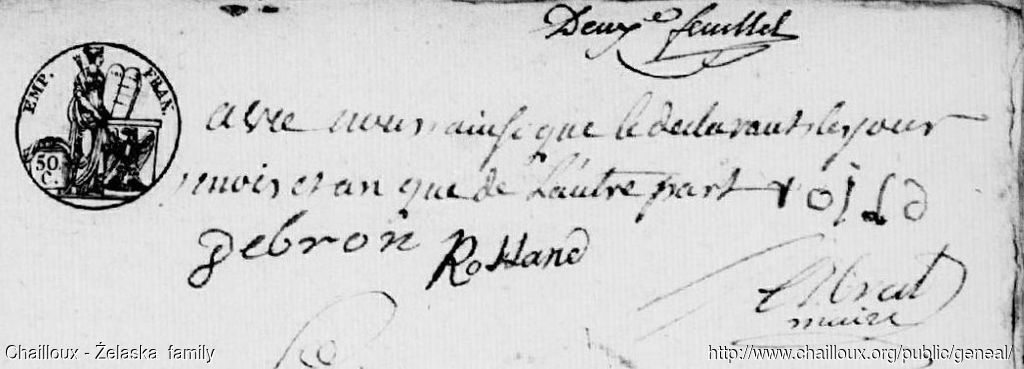 Deux.e feuillet
EMP. FRAN.
50.
C.
avec nous ainsi que le declarant les jour
mois et an que de L'autre part
gebron Rolland
maire
Chailloux - Żelaska family
http://www.chailloux.org/public/geneal/